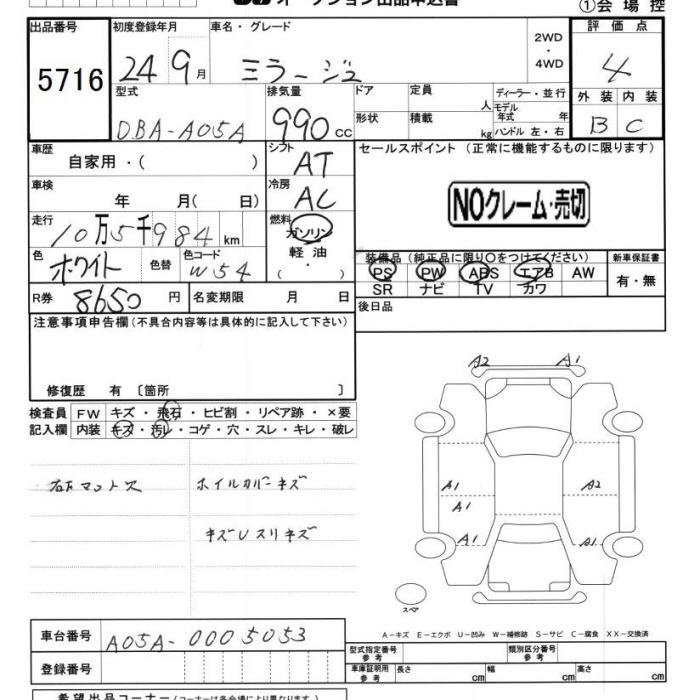 オークション出品申込書
①会場控
出品番号 初度登録年月 車名・グレード 2WD・4WD 評価点
5716 24 9月 ミラージュ 4
型式 排気量 ドア 定員 人 ディーラー・並行 外装 内装
DBA-A05A 990cc 形状 積載 kg モデル年式 年 ハンドル 左・右 B C
車歴 シフト セールスポイント (正常に機能するものに限ります)
自家用・( ) AT
車検 冷房
年 月( 日) AC NOクレーム・売切
走行 燃料
10万5千984km ガソリン
色 色替 色コード 軽油 装備品 (純正品に限り○をつけてください) 新車保証書
ホワイト W54 ( ・ ) PS PW ABS エアB AW 有・無
SR ナビ TV カワ
R券 8650円 名変期限 月 日 後日品
注意事項申告欄(不具合内容等は具体的に記入して下さい)
修復歴 有 〔箇所 〕
検査員 FW キズ・飛石・ヒビ割・リペア跡・×要
記入欄 内装 キズ・汚レ・コゲ・穴・スレ・キレ・破レ
A2 A1
ホイルカバーキズ
A1 A2
A1
キズUスリキズ
A1 A1
スペア
A−キズ E−エクボ U−凹み W−補修跡 S−サビ C−腐食 XX−交換済
車台番号 A05A-0005053
型式指定番号 参考 類別区分番号 参考
登録番号 車庫証明用 参考 長さ cm 幅 cm 高さ cm
希望出品コーナー(コーナーは各会場により異なります。)